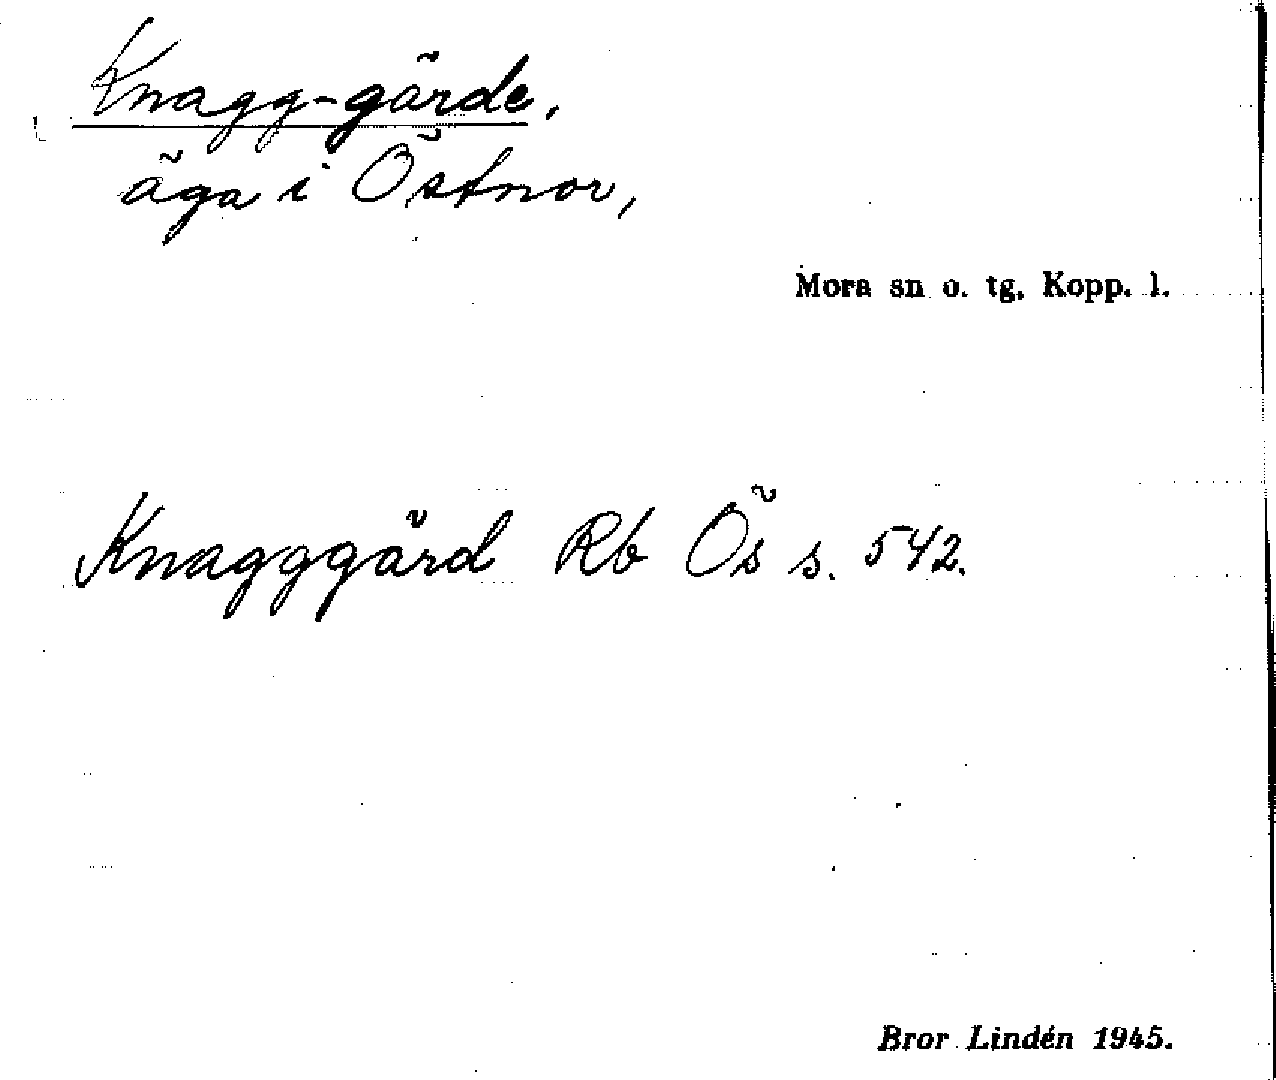 Knagg-gärde,
äga i Östnor,
Mora sn o. tg, Kopp. l.
Knagggärd Rb Ös s. 542.
Bror Lindén 1945.